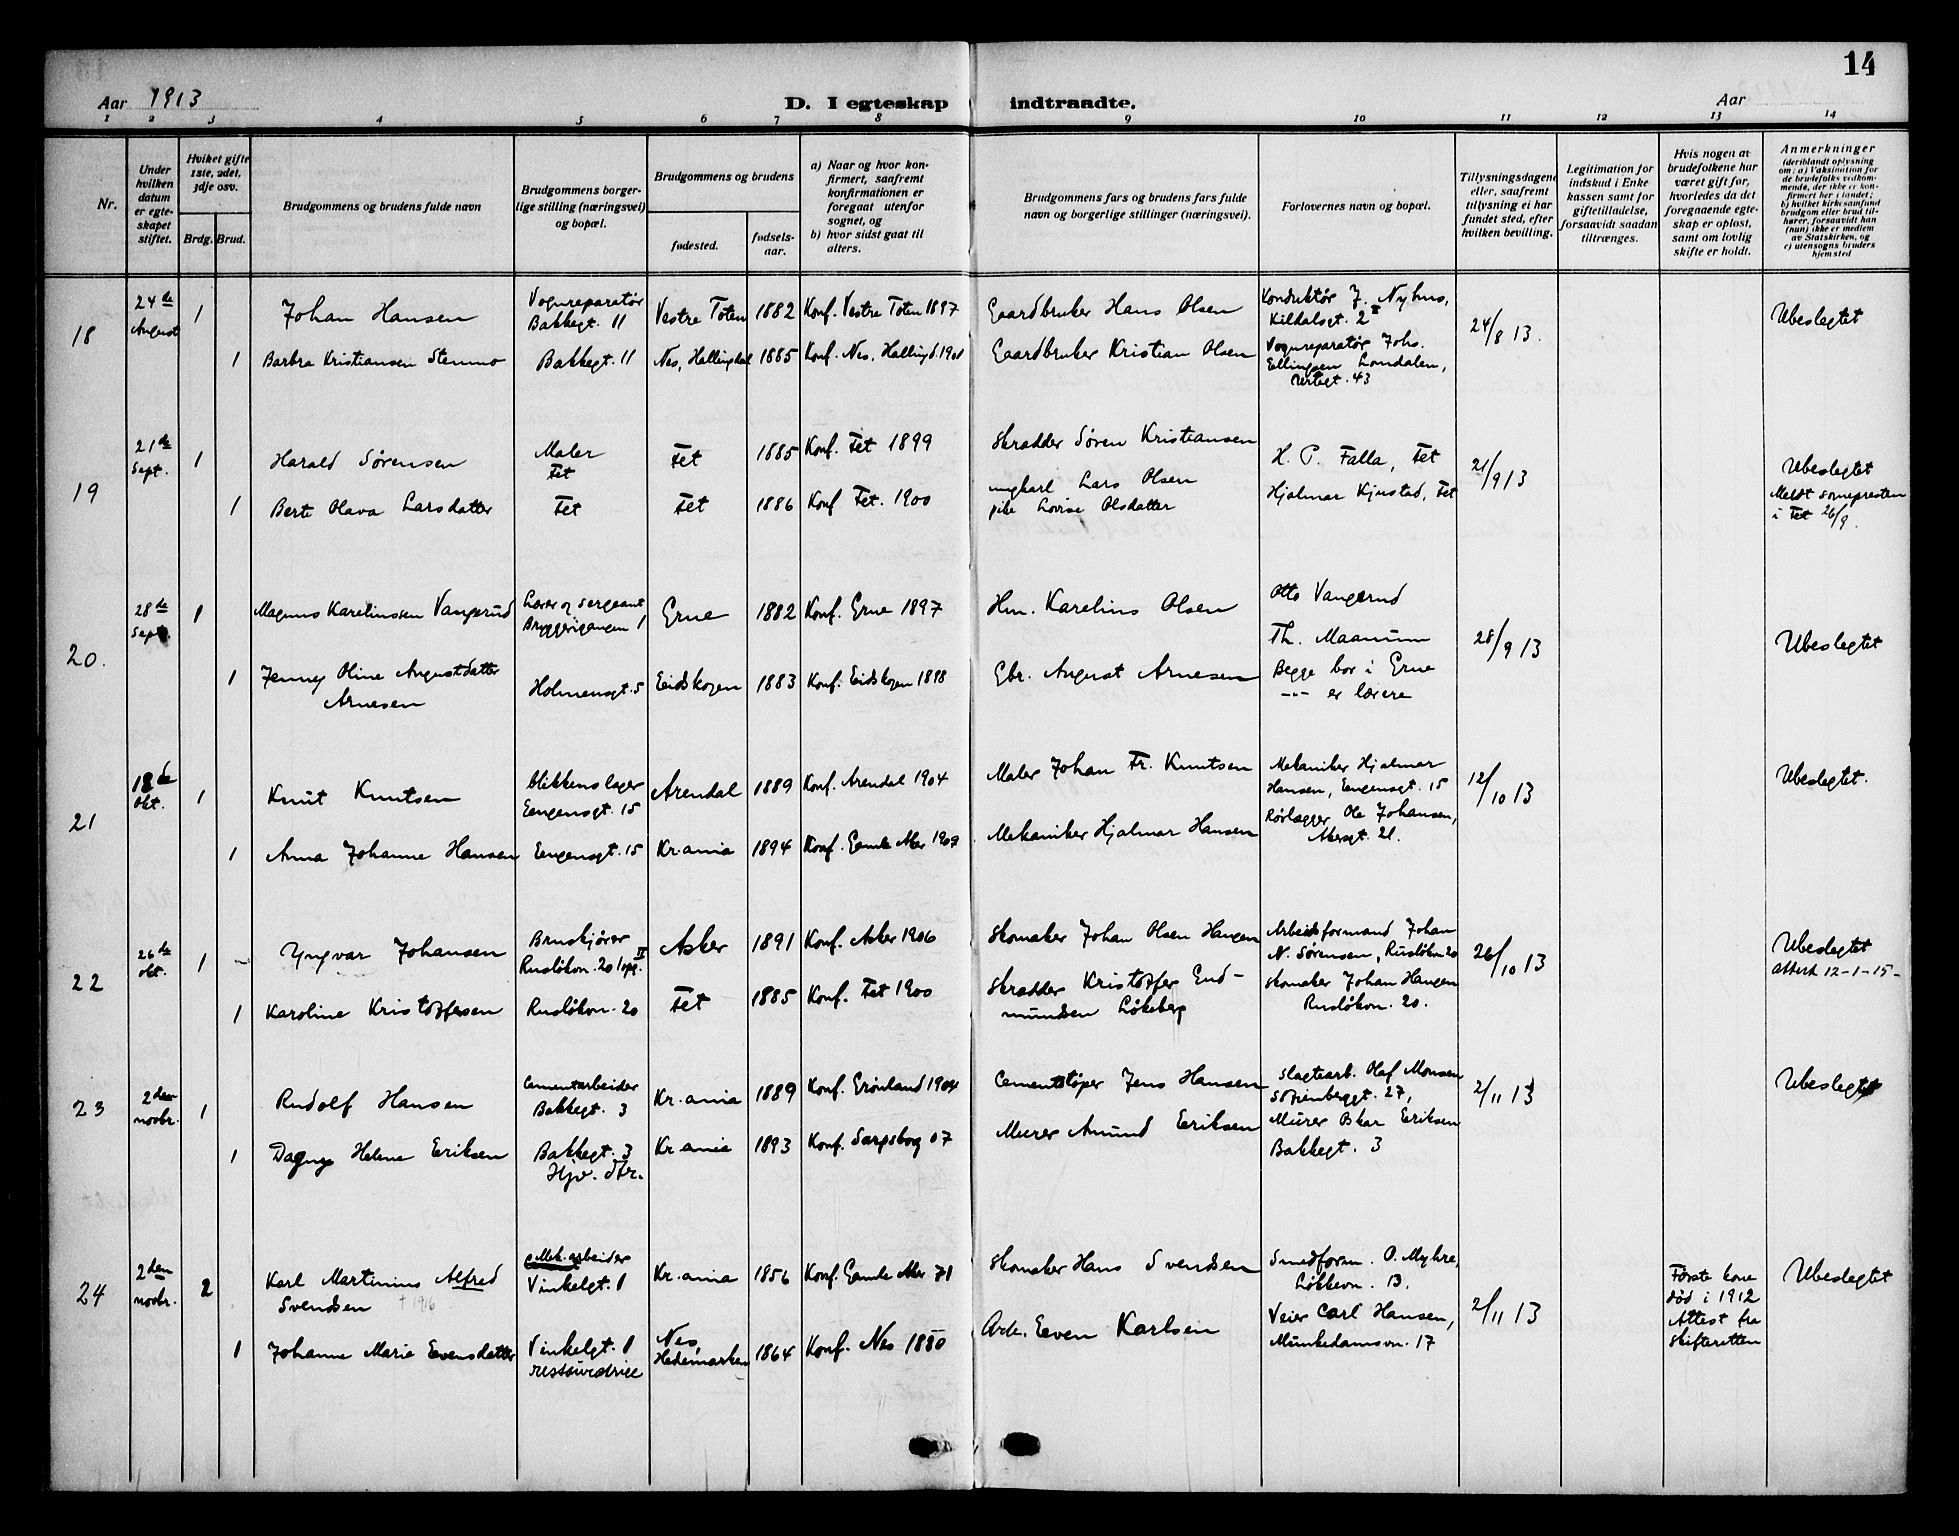 14
Aar 1913
D. I egteskap indtraadte.
Aar
1 2 3 4 5 6 7 8 9 10 11 12 13 14
Nr.
Under
hvilken
datum
er egte-
skapet
stiftet.
Hvilket gifte
1ste, 2det,
3dje osv.
Brdg. Brud.
Brudgommens og brudens fulde navn
Brudgommens borger-
lige stilling (næringsvei)
og bopæl.
Brudgommens og brudens
fødested.
fødsels-
aar.
a) Naar og hvor kon-
firmert, saafremt
konfirmationen er
foregaat utenfor
sognet, og
b) hvor sidst gaat til
alters.
Brudgommens og brudens fars fulde
navn og borgerlige stillinger (næringsvei).
Forlovernes navn og bopæl.
Tillysningsdagene
eller, saafremt
tillysning ei har
fundet sted, efter
hvilken bevilling.
Legitimation for
indskud i Enke
kassen samt for
giftetilladelse,
forsaavidt saadan
tiltrænges.
Hvis nogen av
brudefolkene har
været gift før,
hvorledes da det
foregaaende egte-
skap er opløst,
samt om lovlig
skifte er holdt.
Anmerkninger
(deriblandt oplysning
om: a) Vaksination for
de brudefolks vedkom-
mende, der ikke er kon-
firmert her i landet;
b) hvilket kirkesamfund
brudgom eller brud til-
hører, forsaavidt han
(hun) ikke er medlem
av Statskirken, og
c) utensogns bruders
hjemsted
18
24de
August
1
Johan Hansen
Vognreparatør
Bakkegt. 11
Vestre Toten
1882
Konf. Vestre Toten 1897
Gaardbruker Hans Olsen
Konduktør J. Nyhus,
Kildalsgt. 2 II
24/8 13.
Ubeslegtet
1
Barbra Kristiansen Stemmo
Bakkegt. 11
Nes, Hallingdal
1885
Konf. Nes, Hallingd. 1901
Gaardbruker Kristian Olsen
Vognreparatør Johs.
Ellingsen Lomdalen,
43
19
21de
Sept.
1
Harald Sørensen
Maler
Fet
Fet
1885
Konf. Fet 1899
Skrædder Søren Kristiansen
H. P. Falla, Fet
21/9 13
Ubeslegtet
Meldt sognepresten
i Fet 26/9.
1
Berte Olava Larsdatter
Fet
Fet
1886
Konf Fet. 1900
ungkarl Lars Olsen
pike Lovise Olsdatter
Hjalmar Kjustad, Fet
20.
28de
Sept.
1
Magnus Karelinssen Vangerud
Lærer og sergeant
Bryggerigangen 1
Grue
1882
Konf. Grue 1897
Hm. Karelius Olsen
Otto Vangerud
Th. Maanum
Begge bor i Grue
--- er lærere
28/9 13
Ubeslegtet
1
Jenny Oline Augustdatter
Arnesen
Holmensgt. 5
Eidskogen
1883
Konf. Eidskogen 1898
Gbr. August Arnesen
21
12de
Okt.
1
Knut Knutsen
Blikkenslager
Eengensgt. 15
Arendal
1889
Konf. Arendal 1904
Maler Johan Fr. Knutsen
Mekaniker Hjalmar
Hansen, Eengensgt. 15
Rørlægger Ole Johansen,
Akersgt. 21.
12/10 13
Ubeslegtet.
1
Anna Johanne Hansen
Eengensgt. 15
Kr.ania
1894
Konf. Gamle Aker 1909
Mekaniker Hjalmar Hansen
22
26de
Okt.
1
Yngvar Johansen
Bruskjører
Rusløkvn. 20 I opg. II
Asker
1891
Konf. Asker 1906
Skomaker Johan Olsen Haugen
Arbeidsformand Johan
N. Sørensen, Rusløkvn 20
26/10 13
Ubeslegtet
Attest 12-1-15-
1
Karoline Kristoffersen
Rusløkvn. 20
Fet
1885
Konf. Fet 1900
Skrædder Kristoffer Gud-
mundsen Løkeberg
Skomaker Johan Haugen
Rusløkvn. 20.
23
2den
novbr.
1
Rudolf Hansen
Cementarbeider
Bakkegt. 3
Kr.ania
1889
Konf. Grønland 1904
Cementstøper Jens Hansen
Slagtearb. Olaf Monsen
Sofienberggt. 27,
2/11 13
Ubeslegtet
1
Dagny Helene Eriksen
Bakkegt. 3
Hjv. dtr.
Kr.ania
1893
Konf. Sarpsborg 07
Murer Amund Eriksen
Murer Oskar Eriksen
Bakkegt. 3
24
2den
novbr.
2
Karl Martinius Alfred
Svendsen † 1916
Mek. arbeider
Vinkelgt. 1
Kr.ania
1856
Konf. Gamle Aker 71
Skomaker Hans Svendsen
Smedform. O. Myhre,
Løkkevn. 13.
2/11 13
Første kone
død i 1912
Attest fra
skifteretten
Ubeslegtet
1
Johanne Marie Evensdatter
Vinkelgt. 1
Nes,
Hedemarken
1864
Konf. Nes 1880
Arb. Even Karlsen
Veier Carl Hansen,
Munkedamsvn. 17